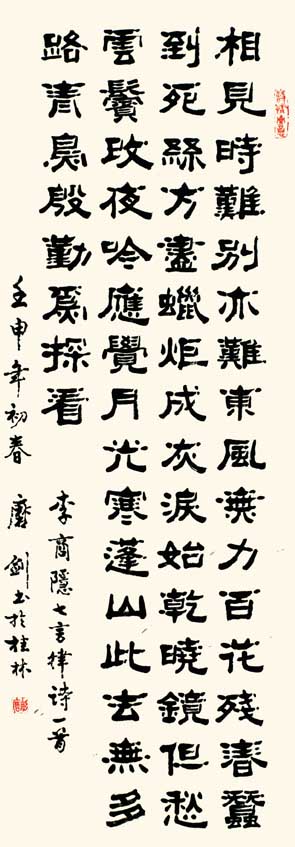 相見時難别亦難東風無力百花殘春蠶
到死絲方盡蠟炬成灰淚始乾曉鏡但愁
雲鬢改夜吟應覺月光寒蓬山此去無多
路青鳥殷勤爲探看
李商隱七言律诗一首
壬申年初春 廖剑书於桂林